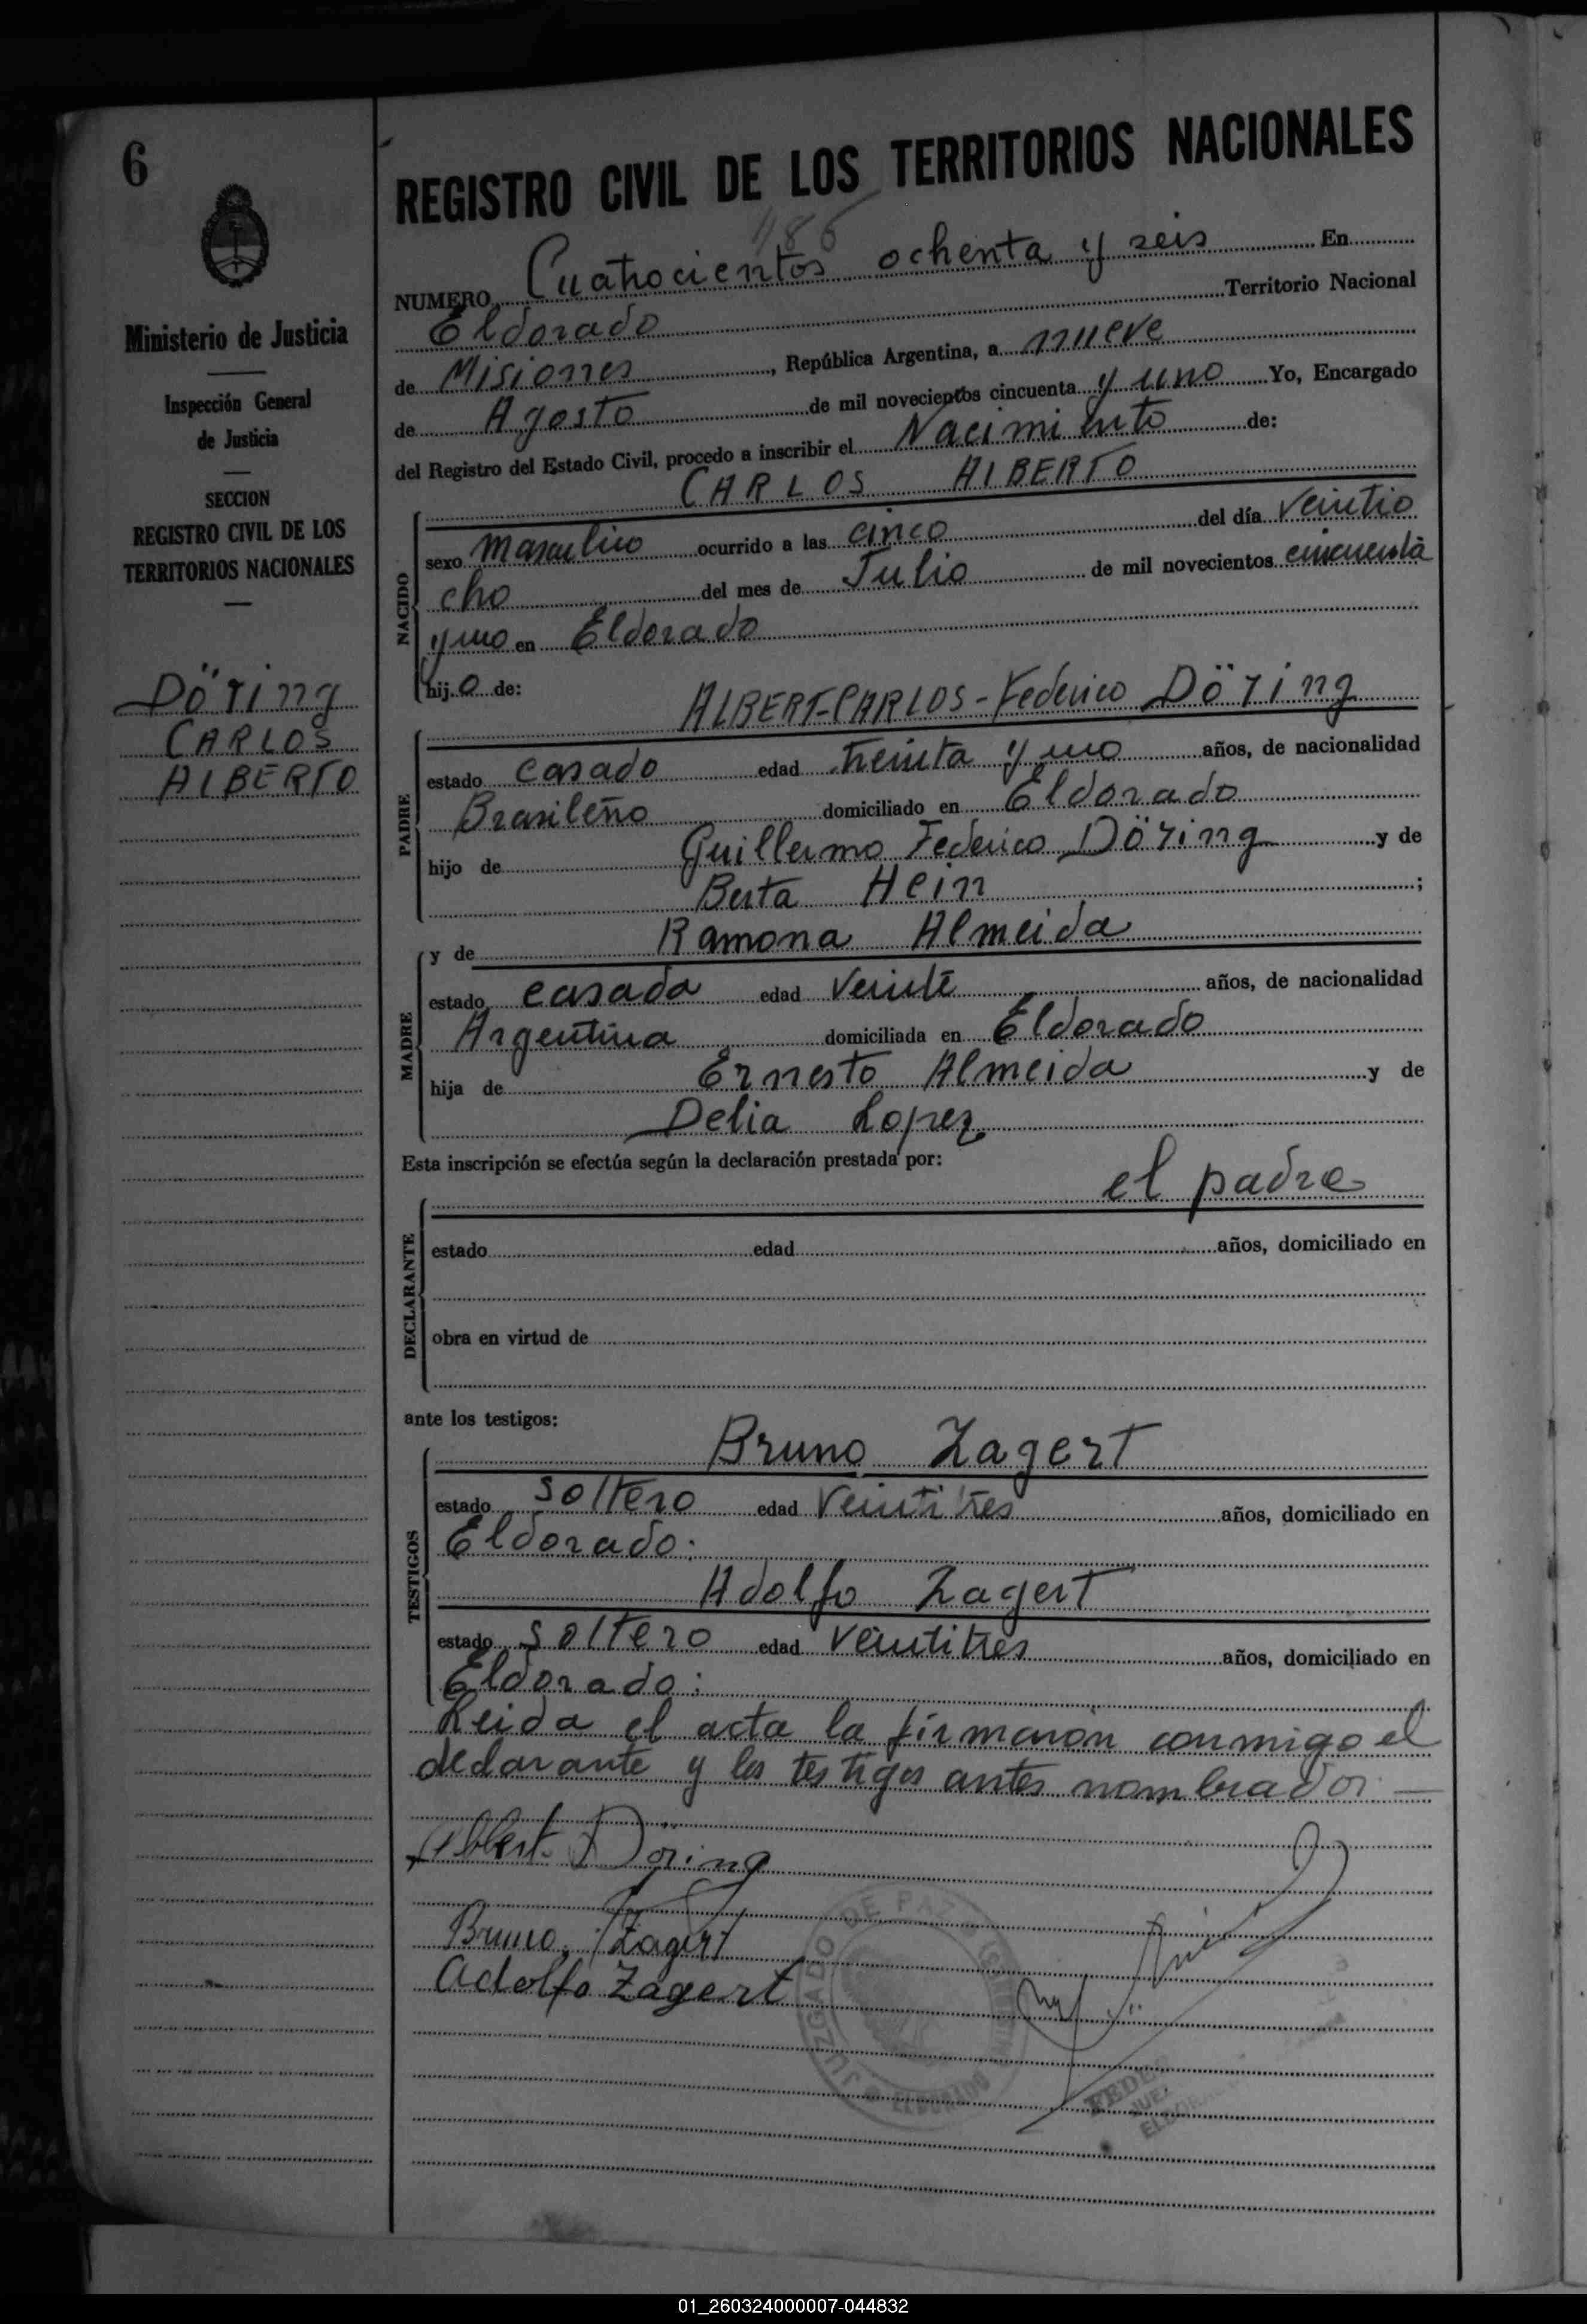 6
Ministerio de Justicia
Inspección General
de Justicia
SECCION
REGISTRO CIVIL DE LOS
TERRITORIOS NACIONALES
Döring
CARLOS
ALBERTO
REGISTRO CIVIL DE LOS TERRITORIOS NACIONALES
486
NUMERO Cuatrocientos ochenta y seis En
Eldorado Territorio Nacional
de Misiones, República Argentina, a nueve
de Agosto de mil novecientos cincuenta y uno Yo, Encargado
del Registro del Estado Civil, procedo a inscribir el Nacimiento de:
CARLOS ALBERTO
NACIDO
sexo masculino ocurrido a las cinco del día veintio
cho del mes de Julio de mil novecientos cincuenta
y uno en Eldorado
hij.o de:
ALBERT-CARLOS-Federico Döring
PADRE
estado casado edad treinta y uno años, de nacionalidad
Brasileño domiciliado en Eldorado
hijo de Guillermo Federico Döring y de
Berta Hein;
y de Ramona Almeida
MADRE
estado casada edad veinte años, de nacionalidad
Argentina domiciliada en Eldorado
hija de Ernesto Almeida y de
Delia Lopez
Esta inscripción se efectúa según la declaración prestada por:
el padre
DECLARANTE
estado edad años, domiciliado en
obra en virtud de
ante los testigos:
Bruno Zagert
TESTIGOS
estado soltero edad veintitres años, domiciliado en
Eldorado.
Adolfo Zagert
estado soltero edad veintitres años, domiciliado en
Eldorado.
Leida el acta la firmaron conmigo el
declarante y los testigos antes nombrados.—
Albert Döring
Bruno Zagert
Adolfo Zagert
JUZGADO DE PAZ
ELDORADO
01_260324000007-044832